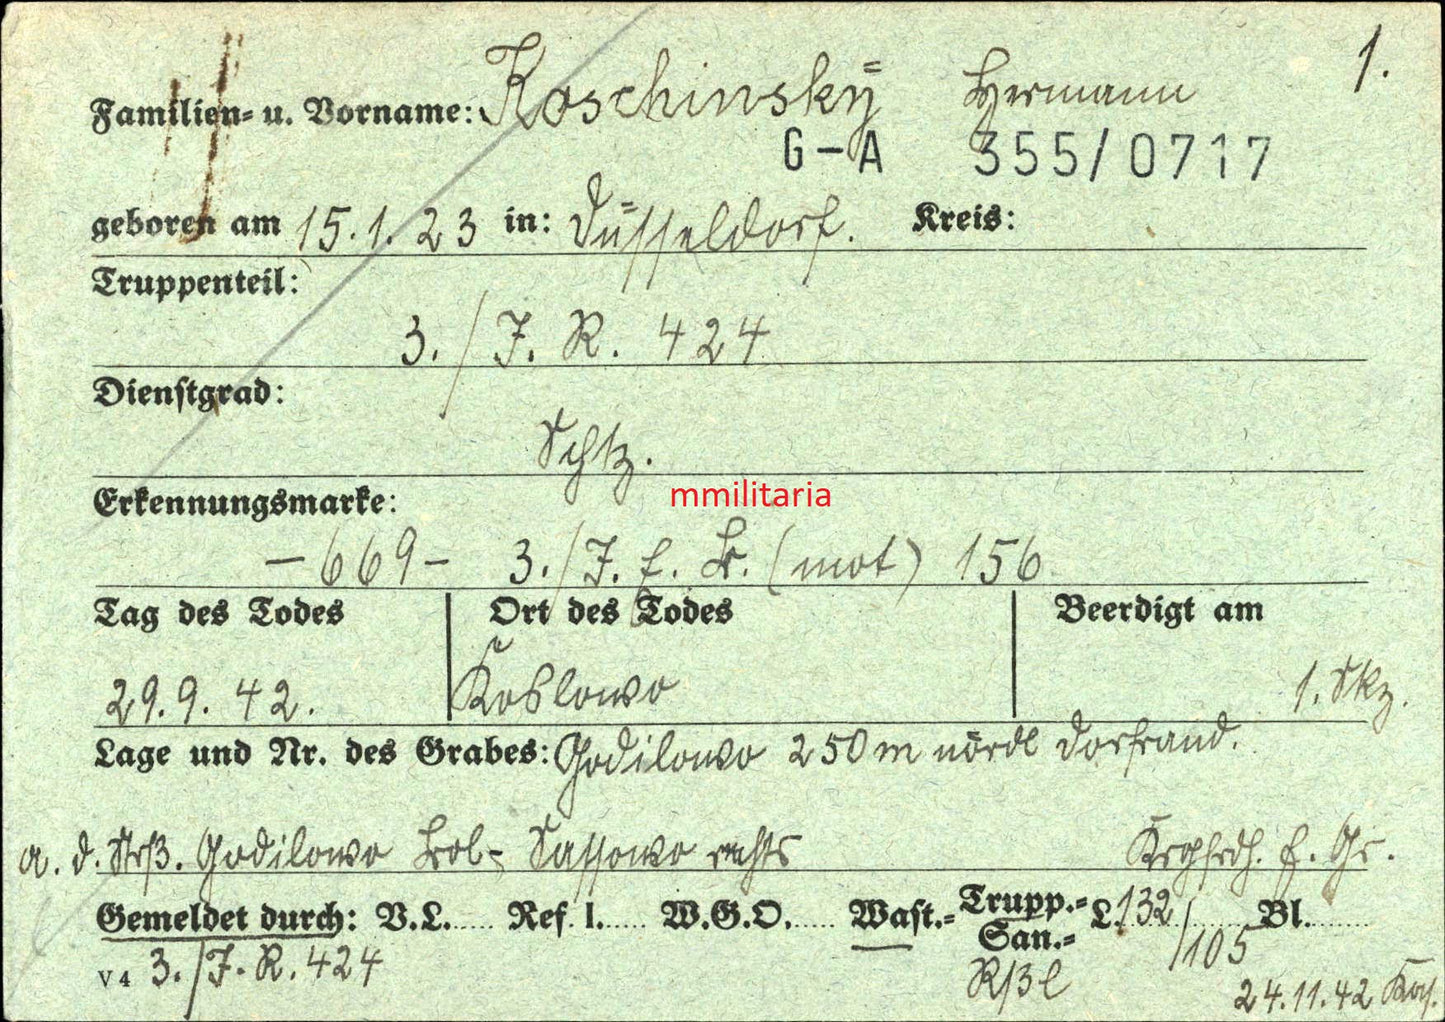 1.
Familien- u. Vorname: Koschinsky Hermann
G-A 355/0717
geboren am 15.1.23 in: Düsseldorf. Kreis:
Truppenteil:
3./J. R. 424
Dienstgrad:
Schtz.
Erkennungsmarke:
mmilitaria
-669- 3./J. E. B. (mot) 156
Tag des Todes Ort des Todes Beerdigt am
29.9.42. Koslowo 1. Skz.
Lage und Nr. des Grabes: Godilowo 250 m nördl Dorfrand.
a. d. Strß. Godilowo Sassowo rechts
Gemeldet durch: V.L..... Ref. 1..... W.G.O..... Wast.- Trupp.- San.- L.132/105 Bl.......
V4 3./J.R. 424
24.11.42